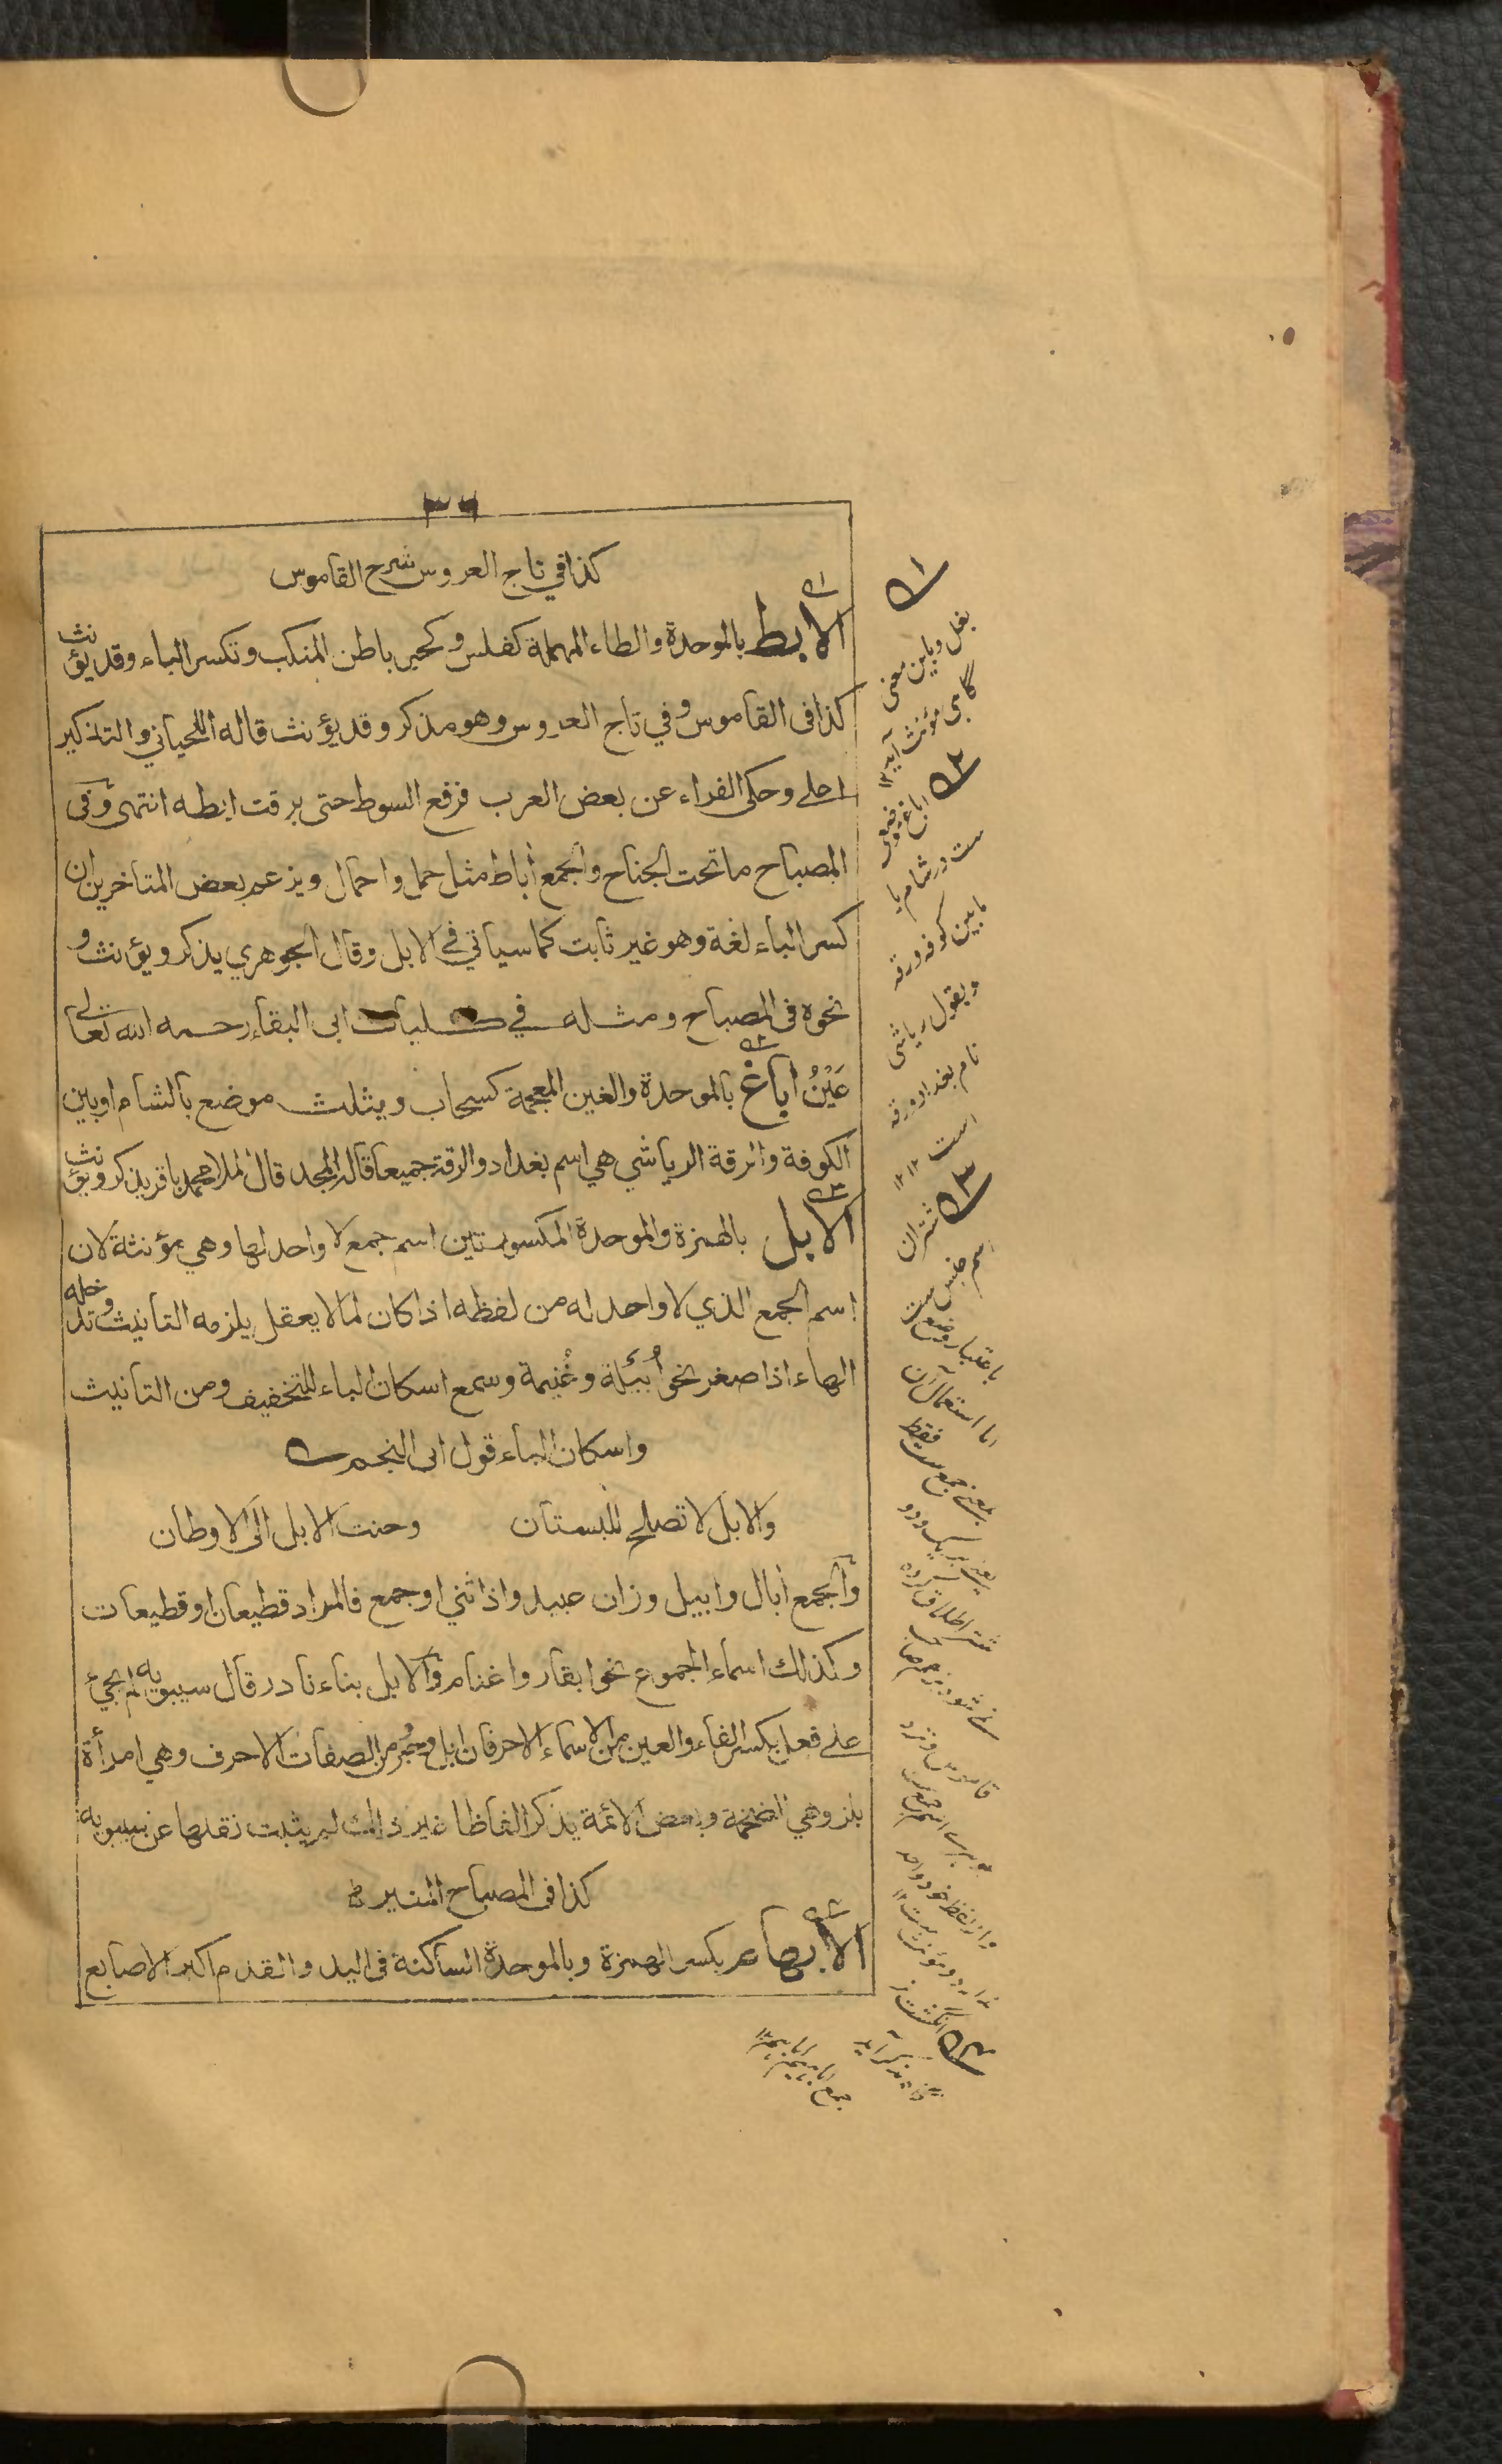 ٣٦
كذا في تاج العروس شرح القاموس
الابط بالموحدة والطاء المهملة كفلس وكحبر باطن المنكب وتكسر الباء وقد يؤنث
كذا فى القاموس وفي تاج العروس وهو مذكر وقد يؤنث قاله اللحياني والتذكير
احلے وحكى الفراء عن بعض العرب فرفع السوط حتى برقت ابطه انتهى وفى
المصباح ما تحت الجناح والجمع أباط مثل حمل واحمال ويزعم بعض المتاخرين ان
كسر الباء لغة وهو غير ثابت كما سياتي في الابل وقال الجوهري يذكر ويؤنث و
نحوه فى المصباح ومثله في كليات ابى البقاء رحمه الله تعالى
عَيْنُ أباغ بالموحدة والغين المعجمة كسحاب ويثلث موضع بالشام او بين
الكوفة والرقة الرياشي هي اسم بغداد والرقة جميعا قاله المجد قال الملا محمد باقر يذكر ويؤنث
الابل بالهمزة والموحدة المكسورتين اسم جمع لا واحد لها وهي مؤنثة لان
اسم الجمع الذي لا واحد له من لفظه اذا كان لما لا يعقل يلزمه التانيث وتدخله
الهاء اذا صغر نحو أُبَيْلة وغُنيمة وسمع اسكان الباء للتخفيف ومن التانيث
واسكان الباء قول ابى النجم
والابل لا تصلح للبستان وحنت الابل الى الاوطان
والجمع أبال وابيل وزان عبيد واذا ثني او جمع فالمراد قطيعان او قطيعات
وكذلك اسماء الجموع نحو ابقار واغنام والابل بناء نادر قال سيبويه لم يجئ
على فعل بكسر الفاء والعين من الاسماء الا حرفان ابل وحبر ومن الصفات الا حرف وهي امرأة
بلز وهي الضخمة وبعض الائمة يذكر الفاظا غير ذلك لم يثبت نقلها عن سيبويه
كذا فى المصباح المنير
الابهام بكسر الهمزة وبالموحدة الساكنة فى اليد والقدم اكبر الاصابع
١
بغل وباين معنى
گاهى مؤنث آيد ١٢
٢ اباغ موضعى
ست در شام يا
مابين كوفه ورقه
وبقول رياشى
نام بغداد ورقه
است ١٢
٣ شتران
اسم جنس ست
باعتبار وضع
اما استعمال آن
بمعنى جمع ست فقط
يعنى بر يك ودو
شتر اطلاق كرده
قاموس
واز لفظ خود واحد
ندارد ومؤنث ست ١٢
٤ انگشت نر
گاہے مذكر آيد